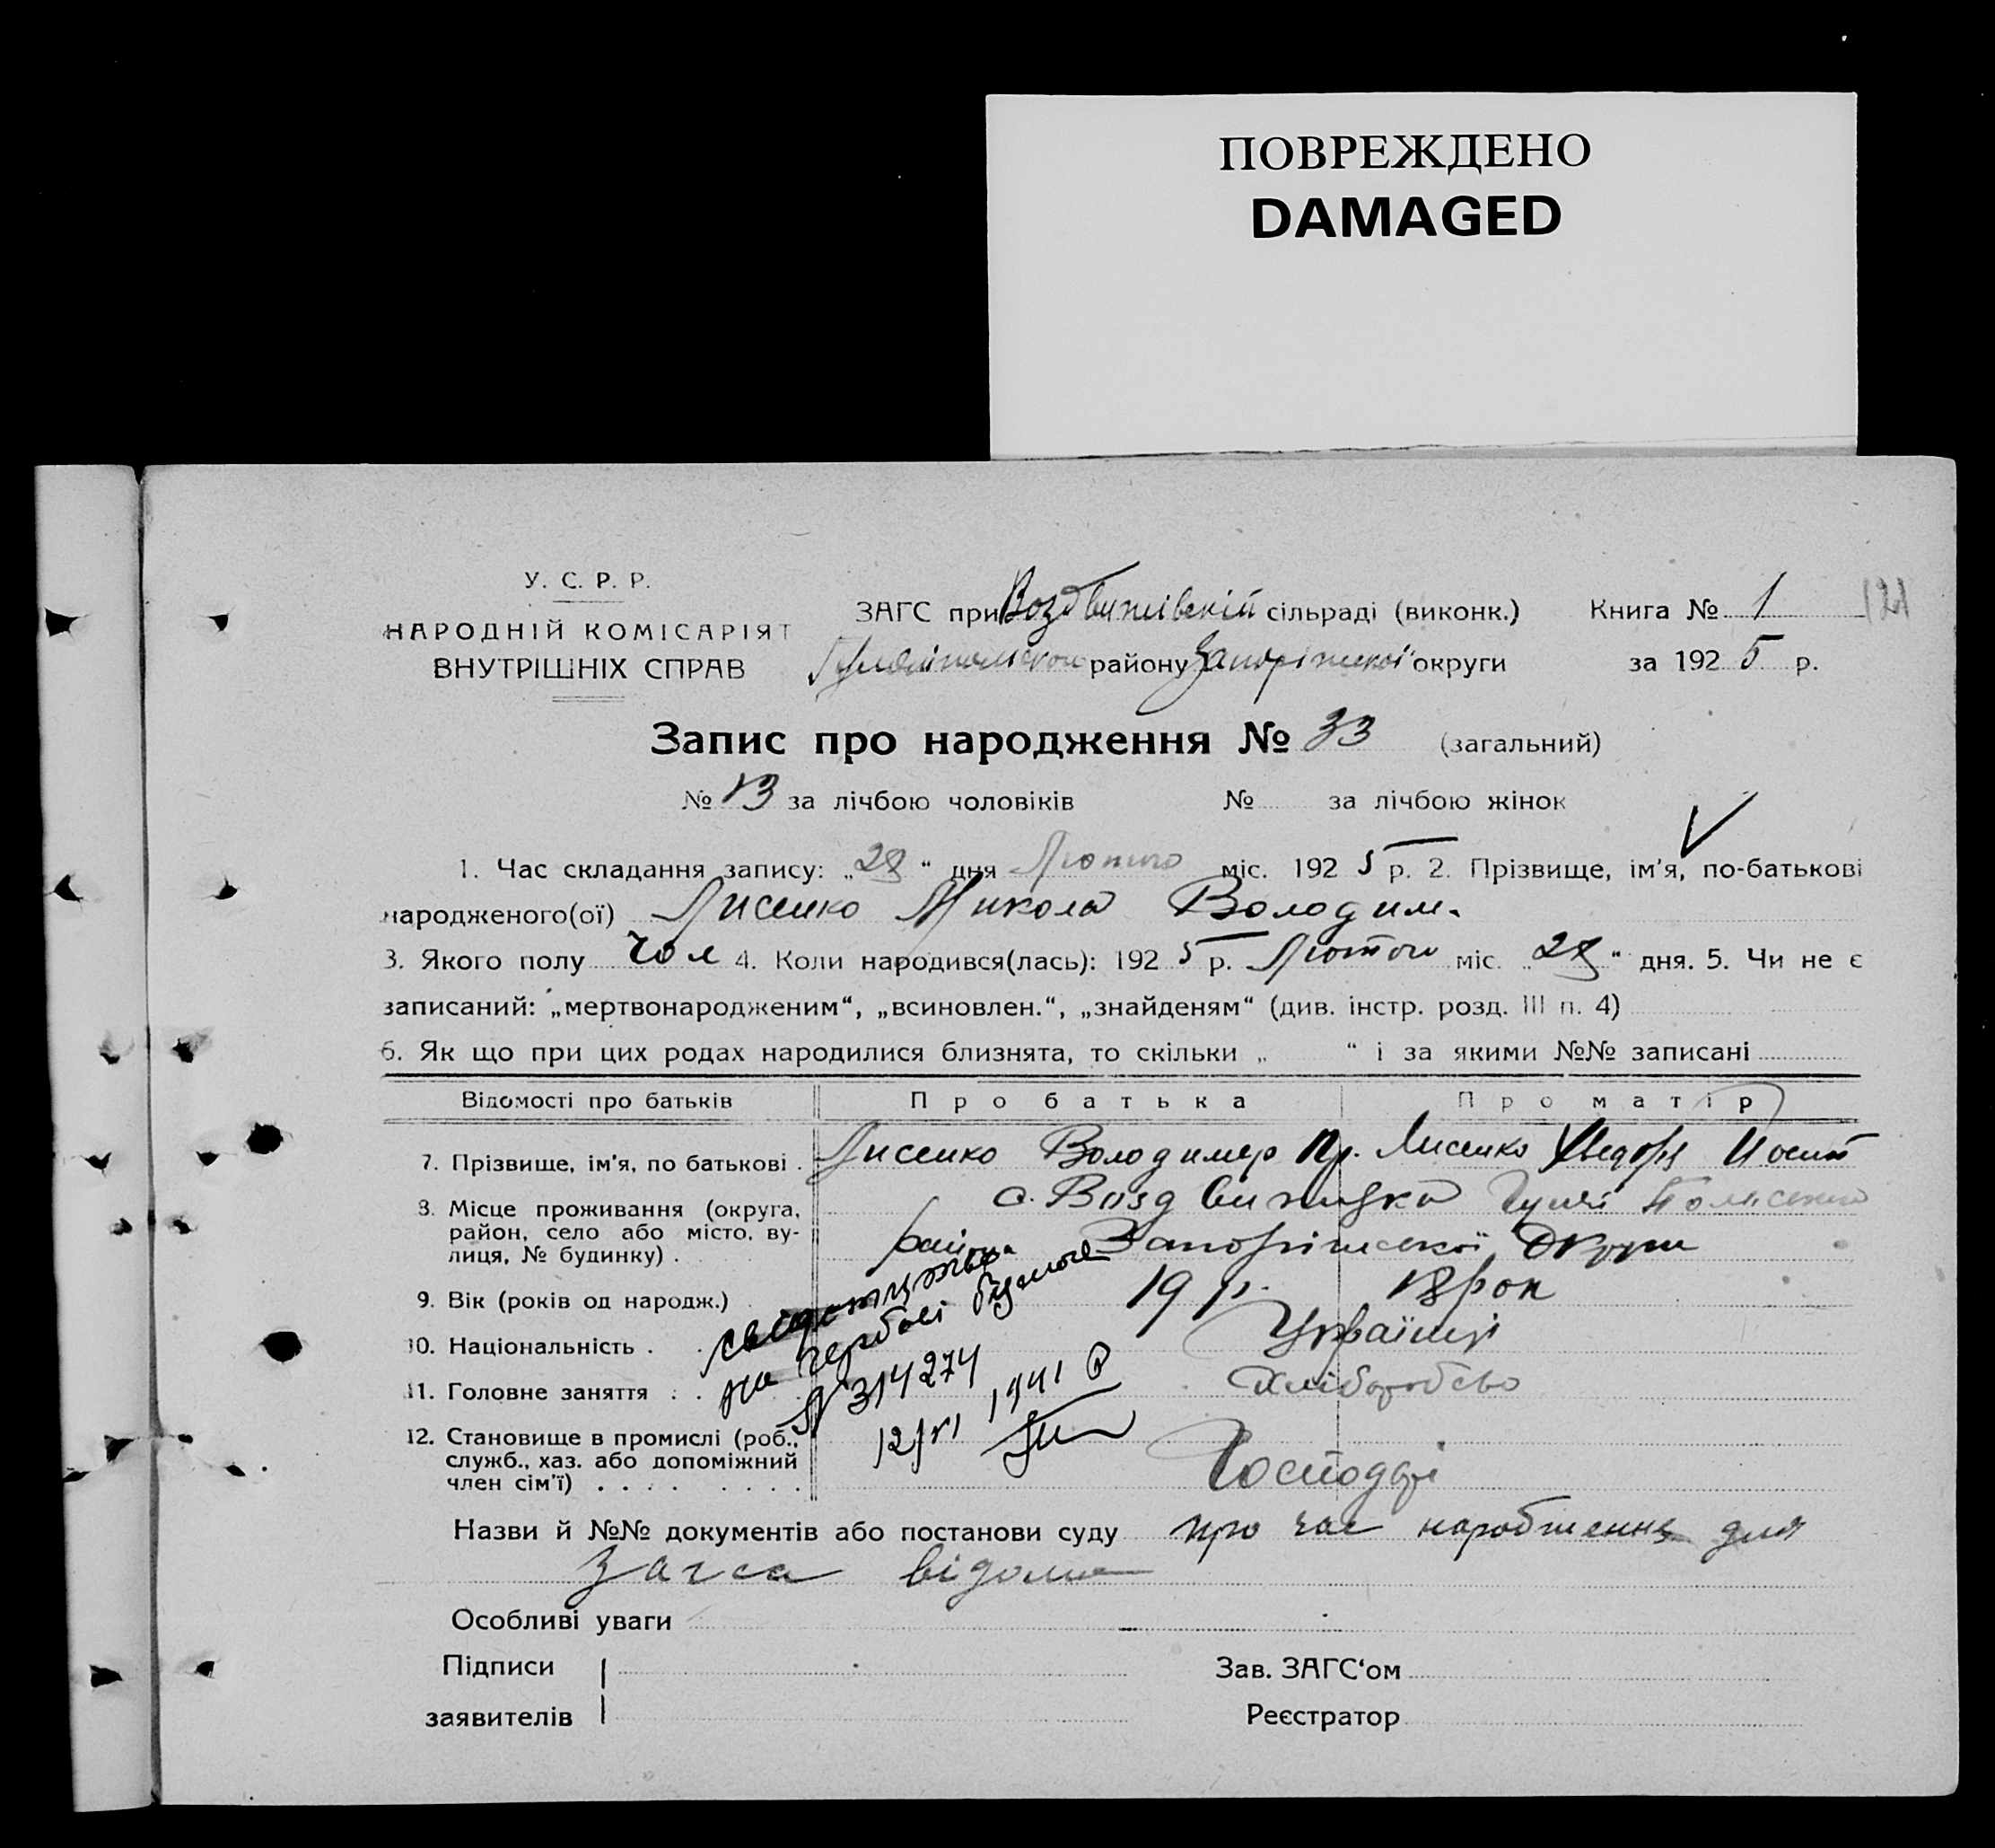 ПОВРЕЖДЕНО
DAMAGED
У. С. Р. Р.
НАРОДНІЙ КОМІСАРІЯТ
ВНУТРІШНІХ СПРАВ
ЗАГС при Воздвижівській сільраді (виконк.) Книга № 1 121
Гуляйпільського району Запоріжської округи за 192 5 р.
Запис про народження № 33 (загальний)
№ 13 за лічбою чоловіків № за лічбою жінок
1. Час складання запису: „28“ дня Лютого міс. 192 5 р. 2. Прізвище, ім'я, по-батькові
народженого(ої) Лисенко Микола Володим.
3. Якого полу чол 4. Коли народився(лась): 192 5 р. Лютого міс. „28“ дня. 5. Чи не є
записаний: „мертвонародженим“, „всиновлен.“, „знайденям“ (див. інстр. розд. III п. 4)
6. Як що при цих родах народилися близнята, то скільки „ “ і за якими №№ записані
Відомості про батьків Про батька Про матір
7. Прізвище, ім'я, по батькові . Лисенко Володимер Пр. Лисенко Хведора Йосип
8. Місце проживання (округа, с. Воздвижка Гуляй Польського
район, село або місто, ву-
лиця, № будинку) . району Запоріжської Округи
9. Вік (років од народж.) . 19 р. 18 рок
10. Національність . Українці
11. Головне заняття . . Хліборобство
свідоцтво
на гербові бумазі
№ 314274
12/VI 1941 р
12. Становище в промислі (роб.,
служб., хаз. або допоміжний
член сім'ї) . . . . . . . . Господарі
Назви й №№ документів або постанови суду про час народження для
Загса відомо
Особливі уваги
Підписи Зав. ЗАГС'ом
заявителів Реєстратор